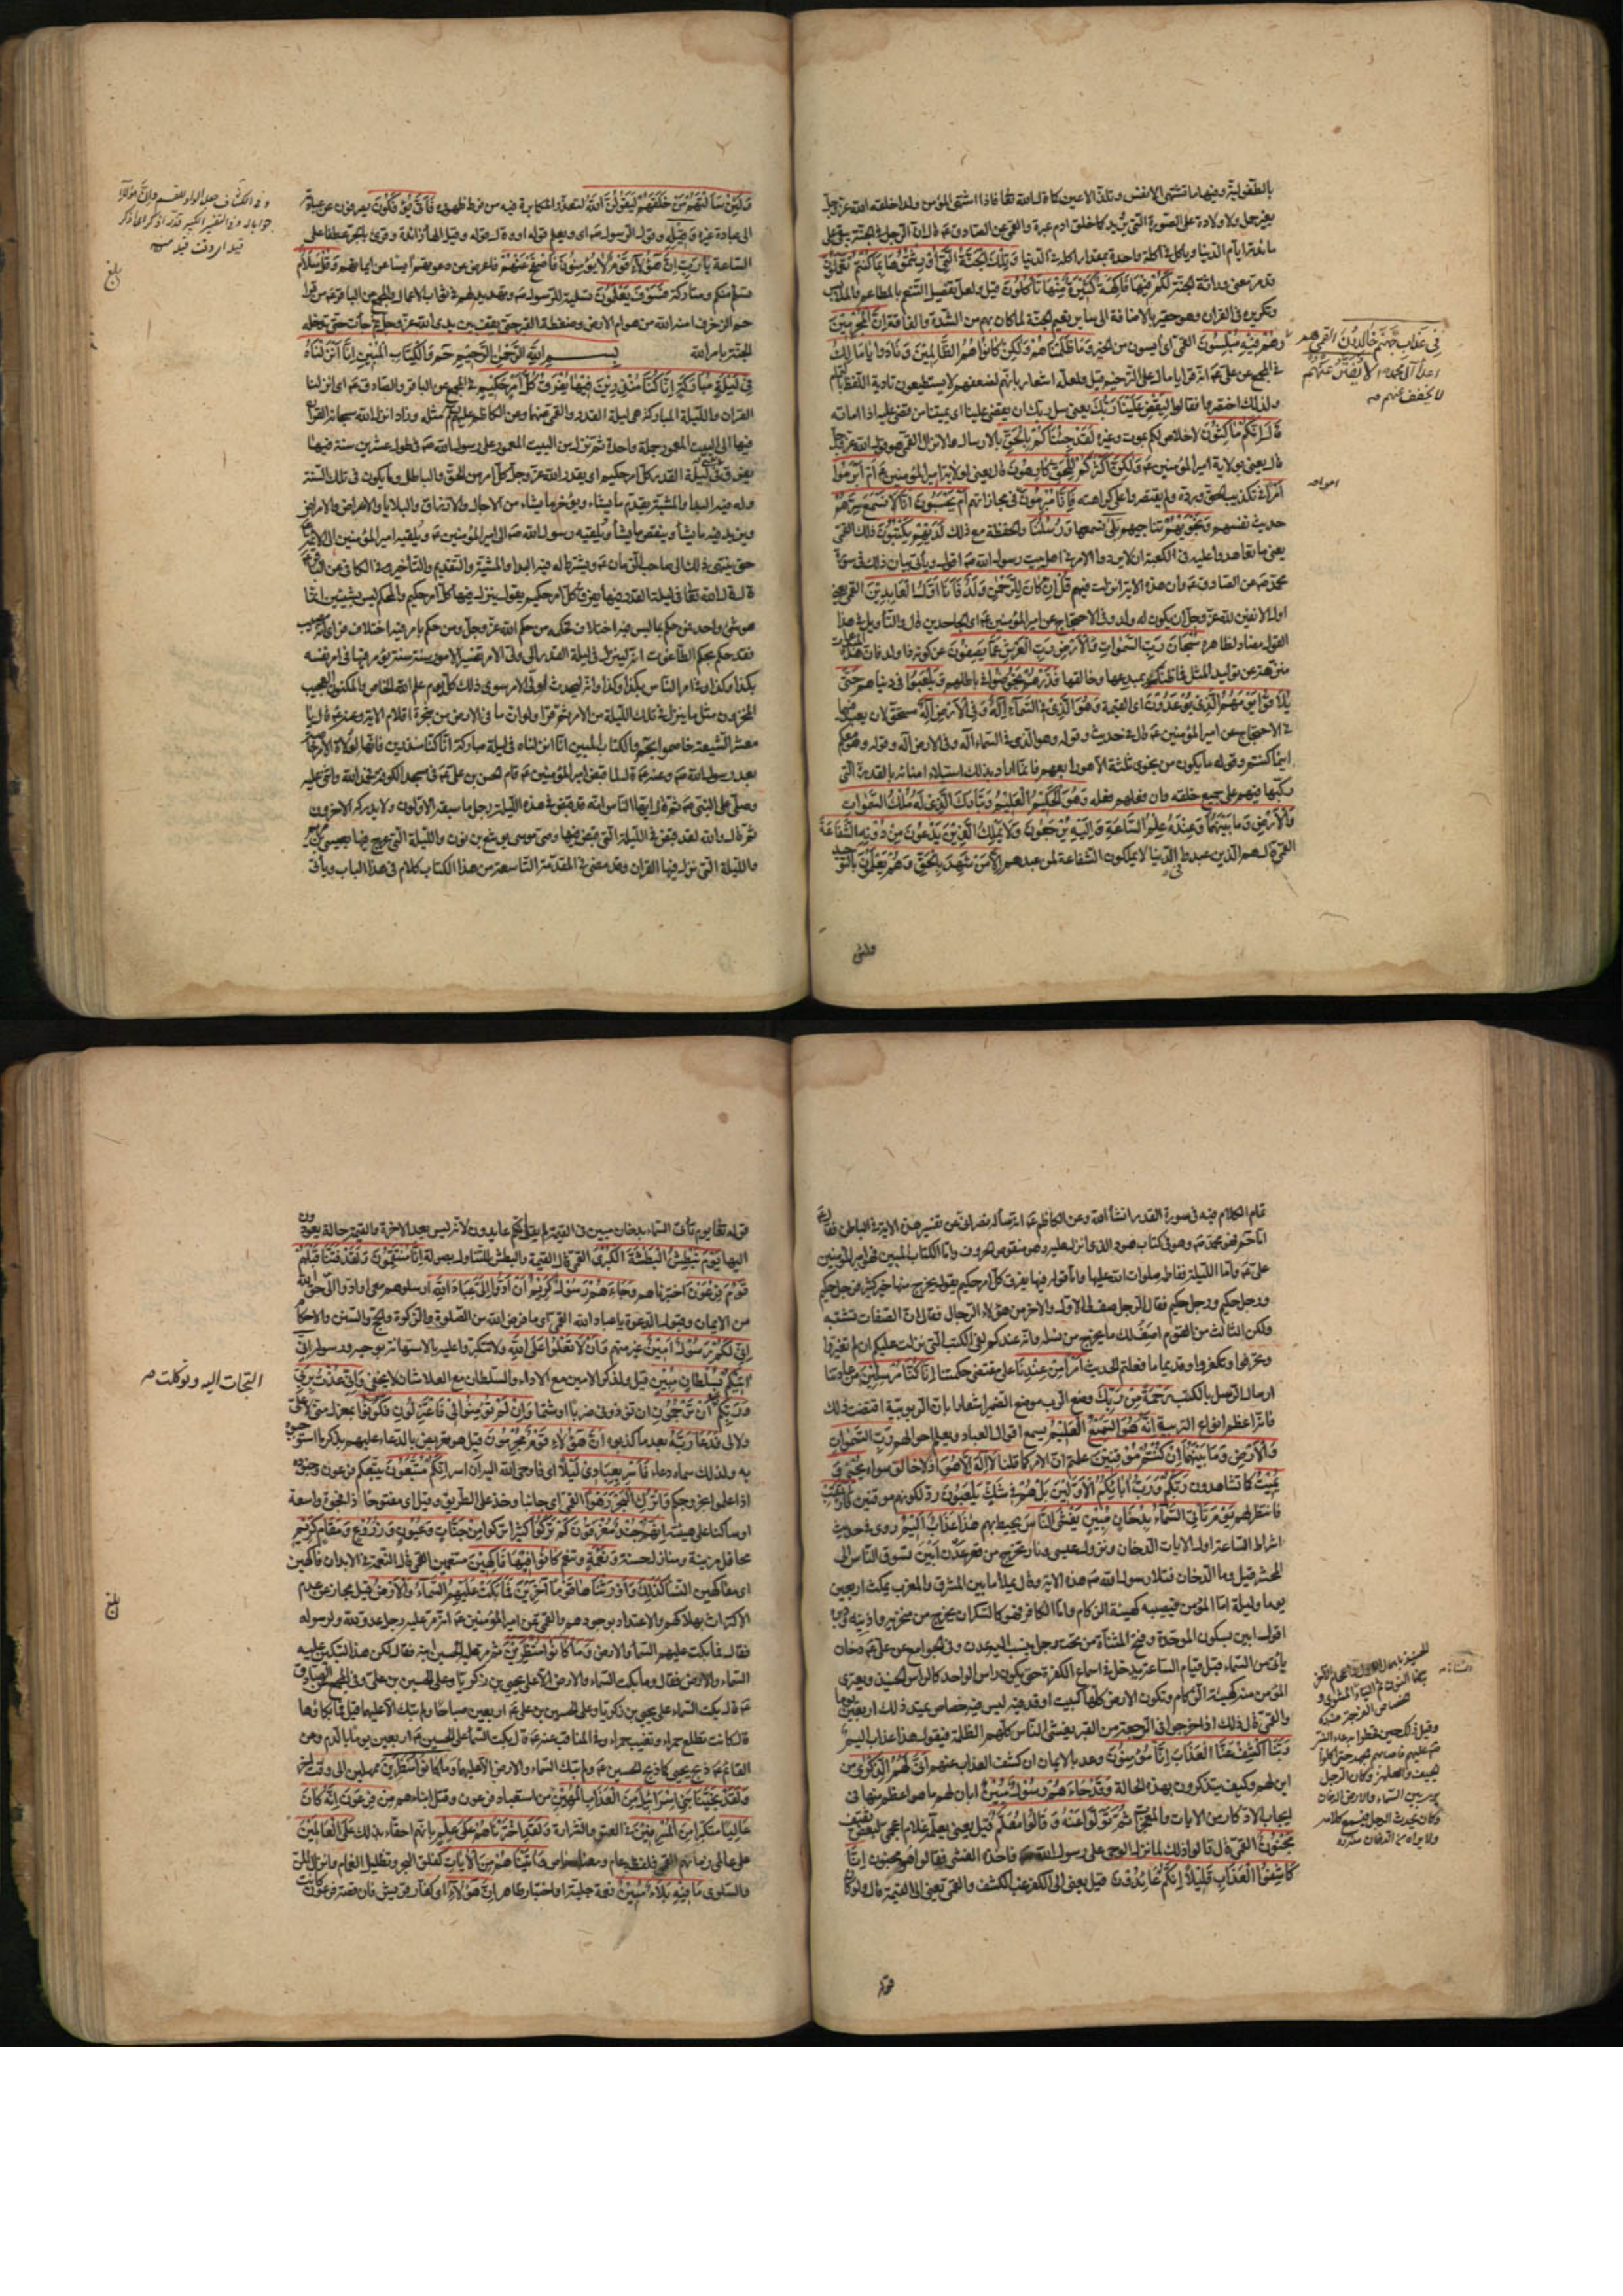 بالطفولية وفيها ما تشتهي الانفس وتلذ الاعين كا قال الله تعالى فاذا اشتهى المؤمن ولدا خلقه الله عز وجل
بغير حمل ولا ولادة على الصورة التي يريد كما خلق ادم عبرة والقمي عن الصادق ع قال ان الرجل في الجنة يبقى على
مائدته ايام الدنيا وياكل في اكلة واحدة بمقدار اكله في الدنيا وَتِلْكَ الْجَنَّةُ الَّتِي أُورِثْتُمُوهَا بِمَا كُنْتُمْ تَعْمَلُونَ
لَكُمْ فِيهَا فَاكِهَةٌ كَثِيرَةٌ مِنْهَا تَأْكُلُونَ قيل ولعل تفصيل التنعم بالمطاعم والملابس
وتكريره في القران وهو حقير بالاضافة الى ساير نعيم الجنة لما كان بهم من الشدة والفاقة إِنَّ الْمُجْرِمِينَ
فِي عَذَابِ جَهَنَّمَ خَالِدُونَ القمي هم
اعداء آل محمد ص لَا يُفَتَّرُ عَنْهُمْ
لا يخفف عنهم
وَهُمْ فِيهِ مُبْلِسُونَ القمي اي آيسون من الخير وَمَا ظَلَمْنَاهُمْ وَلَكِنْ كَانُوا هُمُ الظَّالِمِينَ وَنَادَوْا يَا مَالِكُ
في المجمع عن علي ع انه قرا يا مال على الترخيم قيل ولعله اشعار بانهم لضعفهم لا يستطيعون تادية اللفظ بالتمام
ولذلك اختصروا فقالوا لِيَقْضِ عَلَيْنَا رَبُّكَ يعني سل ربك ان يقضي علينا اي يميتنا من قضى عليه اذا اماته
قَالَ إِنَّكُمْ مَاكِثُونَ لا خلاص لكم بموت وغيره لَقَدْ جِئْنَاكُمْ بِالْحَقِّ بالارسال والانزال القمي هو قول الله عز وجل
قال يعني بولاية امير المؤمنين ع وَلَكِنَّ أَكْثَرَكُمْ لِلْحَقِّ كَارِهُونَ قال يعني لولاية امير المؤمنين ع أَمْ أَبْرَمُوا
أَمْرًا في تكذيب الحق ورده ولم يقتصروا على كراهته فَإِنَّا مُبْرِمُونَ في مجازاتهم أَمْ يَحْسَبُونَ أَنَّا لَا نَسْمَعُ سِرَّهُمْ
حديث نفسهم وَنَجْوَاهُمْ تناجيهم بَلَى نسمعها وَرُسُلُنَا والحفظة مع ذلك لَدَيْهِمْ يَكْتُبُونَ ذلك القمي
يعني ما تعاهدوا عليه في الكعبة ان لا يردوا الامر في اهل بيت رسول الله ص اقول وياتي بيان ذلك في سورة
محمد ص عن الصادق ع وان هذه الاية نزلت فيهم قُلْ إِنْ كَانَ لِلرَّحْمَنِ وَلَدٌ فَأَنَا أَوَّلُ الْعَابِدِينَ القمي يعني
اول الانفين لله عز وجل ان يكون له ولد وفي الاحتجاج عن امير المؤمنين ع اي الجاحدين قال والتاويل في هذا
القول مضاد لظاهره سُبْحَانَ رَبِّ السَّمَوَاتِ وَالْأَرْضِ رَبِّ الْعَرْشِ عَمَّا يَصِفُونَ عن كونه ذا ولد فان هذه
منزهة عن توليد المثل فما ظنك بمبدعها وخالقها فَذَرْهُمْ يَخُوضُوا في باطلهم وَيَلْعَبُوا في دنياهم حَتَّى
يُلَاقُوا يَوْمَهُمُ الَّذِي يُوعَدُونَ اي القيمة وَهُوَ الَّذِي فِي السَّمَاءِ إِلَهٌ وَفِي الْأَرْضِ إِلَهٌ مستحق لان يعبد فيهما
في الاحتجاج عن امير المؤمنين ع قال في حديث وقوله وهو الذي في السماء اله وفي الارض اله وقوله وهو معكم
اينما كنتم وقوله ما يكون من نجوى ثلثة الا هو رابعهم فانما اراد بذلك استيلاء امنائه بالقدرة التي
ركبها فيهم على جميع خلقه وان فعلهم فعله وَهُوَ الْحَكِيمُ الْعَلِيمُ وَتَبَارَكَ الَّذِي لَهُ مُلْكُ السَّمَوَاتِ
وَالْأَرْضِ وَمَا بَيْنَهُمَا وَعِنْدَهُ عِلْمُ السَّاعَةِ وَإِلَيْهِ تُرْجَعُونَ وَلَا يَمْلِكُ الَّذِينَ يَدْعُونَ مِنْ دُونِهِ الشَّفَاعَةَ
القمي قال هم الذين عبدوا في الدنيا لا يملكون الشفاعة لمن عبدهم إِلَّا مَنْ شَهِدَ بِالْحَقِّ وَهُمْ يَعْلَمُونَ بالتوحيد
ولئن
وَلَئِنْ سَأَلْتَهُمْ مَنْ خَلَقَهُمْ لَيَقُولُنَّ اللَّهُ لتعذر المكابرة فيه من فرط ظهوره فَأَنَّى يُؤْفَكُونَ يصرفون عن عبادته
الى عبادة غيره وَقِيلِهِ وقول الرسول ص اي ويعلم قوله او وقال قوله وقيل الهاء زائدة وقرئ بالجر عطفا على
الساعة يَا رَبِّ إِنَّ هَؤُلَاءِ قَوْمٌ لَا يُؤْمِنُونَ فَاصْفَحْ عَنْهُمْ فاعرض عن دعوتهم آيسا عن ايمانهم وَقُلْ سَلَامٌ
تسلم منكم ومتاركة فَسَوْفَ يَعْلَمُونَ تسلية للرسول ص وتهديد لهم في ثواب الاعمال والمجمع عن الباقر ع من قرا
حم الزخرف امنه الله من هوام الارض وضغطة القبر حتى يقف بين يدي الله عز وجل ثم جاءت حتى تدخله
الجنة بامر الله بسم الله الرحمن الرحيم حم وَالْكِتَابِ الْمُبِينِ إِنَّا أَنْزَلْنَاهُ
فِي لَيْلَةٍ مُبَارَكَةٍ إِنَّا كُنَّا مُنْذِرِينَ فِيهَا يُفْرَقُ كُلُّ أَمْرٍ حَكِيمٍ في المجمع عن الباقر والصادق ع اي انزلنا
القران والليلة المباركة هي ليلة القدر والقمي عنهما وعن الكاظم عليهم السلم مثله وزاد انزل الله سبحانه القران
فيها الى البيت المعمور جملة واحدة ثم نزل من البيت المعمور على رسول الله ص في طول عشرين سنة فيها
يفرق في ليلة القدر كل امر حكيم اي يقدر الله عز وجل كل امر من الحق والباطل وما يكون في تلك السنة
وله فيه البداء والمشية يقدم ما يشاء ويؤخر ما يشاء من الاجال والارزاق والبلايا والاعراض والامراض
ويزيد فيه ما يشاء وينقص ما يشاء ويلقيه رسول الله ص الى امير المؤمنين ع ويلقيه امير المؤمنين الى الائمة
حتى ينتهي ذلك الى صاحب الزمان ع ويشترط له فيه البداء والمشية والتقديم والتاخير وفي الكافي عن الباقر
قال قال الله تعالى في ليلة القدر فيها يفرق كل امر حكيم يقول ينزل فيها كل امر حكيم والمحكم ليس بشيئين انما
هو شيء واحد فمن حكم بما ليس فيه اختلاف فحكمه من حكم الله عز وجل ومن حكم بامر فيه اختلاف فراى انه مصيب
فقد حكم بحكم الطاغوت انه لينزل في ليلة القدر الى ولي الامر تفسير الامور سنة سنة يؤمر فيها في امر نفسه
بكذا وكذا وفي امر الناس بكذا وكذا وانه ليحدث لولي الامر سوى ذلك كل يوم علم الله الخاص والمكنون العجيب
المخزون مثل ما ينزل في تلك الليلة من الامر ثم قرا ولو ان ما في الارض من شجرة اقلام الاية وعنه ع قال يا
معشر الشيعة خاصموا بحم والكتاب المبين انا انزلناه في ليلة مباركة انا كنا منذرين فانها لولاة الامر خاصة
بعد رسول الله ص وعنه ع قال لما قبض امير المؤمنين ع قام الحسن بن علي ع في مسجد الكوفة فحمد الله واثنى عليه
وصلى على النبي ص ثم قال ايها الناس انه قد قبض في هذه الليلة رجل ما سبقه الاولون ولا يدركه الاخرون
ثم قال والله لقد قبض في الليلة التي قبض فيها وصي موسى يوشع بن نون والليلة التي عرج فيها بعيسى بن مريم
والليلة التي نزل فيها القران وقد مضى في المقدمة التاسعة من هذا الكتاب كلام في هذا الباب وياتي
وفي الكشاف جعل الواو للقسم وان هؤلاء
جوابا له
بلغ
تمام الكلام فيه في سورة القدر انشاء الله وعن الكاظم ع انه ساله نصراني عن تفسير هذه الاية في الباطن فقال
اما حم فهو محمد ص وهو في كتاب هود الذي انزل عليه وهو منقوص الحروف واما الكتاب المبين فهو امير المؤمنين
علي ع واما الليلة ففاطمة صلوات الله عليها واما قوله فيها يفرق كل امر حكيم يقول يخرج منها خير كثير فرجل حكيم
ورجل حكيم ورجل حكيم فقال الرجل صف لي الاول والاخر من هؤلاء الرجال فقال ان الصفات تشتبه
ولكن الثالث من القوم اصف لك ما يخرج من نسله وانه عندكم لفي الكتب التي نزلت عليكم ان لم تغيروا
وتحرفوا وتكفروا وقديما ما فعلتم الحديث أَمْرًا مِنْ عِنْدِنَا على مقتضى حكمتنا إِنَّا كُنَّا مُرْسِلِينَ
ارسال الرسل بالكتب رَحْمَةً مِنْ رَبِّكَ وضع الرب موضع الضمير اشعارا بان الربوبية اقتضت ذلك
فانه اعظم انواع التربية إِنَّهُ هُوَ السَّمِيعُ الْعَلِيمُ يسمع اقوال العباد ويعلم احوالهم رَبِّ السَّمَوَاتِ
وَالْأَرْضِ وَمَا بَيْنَهُمَا إِنْ كُنْتُمْ مُوقِنِينَ علمتم ان الامر كما قلنا لَا إِلَهَ إِلَّا هُوَ اذ لا خالق سواه يُحْيِي وَ
يُمِيتُ كما تشاهدون رَبُّكُمْ وَرَبُّ آبَائِكُمُ الْأَوَّلِينَ بَلْ هُمْ فِي شَكٍّ يَلْعَبُونَ رد لكونهم موقنين فَارْتَقِبْ
فانتظر لهم يَوْمَ تَأْتِي السَّمَاءُ بِدُخَانٍ مُبِينٍ يَغْشَى النَّاسَ يحيط بهم هَذَا عَذَابٌ أَلِيمٌ روي في حديث
اشراط الساعة اول الايات الدخان ونزول عيسى ونار تخرج من قعر عدن ابين تسوق الناس الى
المحشر قيل وما الدخان فتلا رسول الله ص هذه الاية وقال يملا ما بين المشرق والمغرب يمكث اربعين
يوما وليلة اما المؤمن فيصيبه كهيئة الزكام واما الكافر فهو كالسكران يخرج من منخريه واذنيه ودبره
اقول ابين بسكون الموحدة وفتح المثناة من تحت رجل ينسب اليه عدن وفي الجوامع عن علي ع دخان
ياتي من السماء قبل قيام الساعة يدخل في اسماع الكفرة حتى يكون راس الواحد كالراس الحنيذ ويعتري
المؤمن منه كهيئة الزكام وتكون الارض كلها كبيت اوقد فيه ليس فيه خصاص يمتد ذلك اربعين يوما
والقمي قال ذلك اذا خرجوا في الرجعة من القبر يغشى الناس كلهم الظلمة فيقولوا هذا عذاب اليم
رَبَّنَا اكْشِفْ عَنَّا الْعَذَابَ إِنَّا مُؤْمِنُونَ وعد بالايمان ان كشف العذاب عنهم أَنَّى لَهُمُ الذِّكْرَى من
اين لهم وكيف يتذكرون بهذه الحالة وَقَدْ جَاءَهُمْ رَسُولٌ مُبِينٌ ابان لهم ما هو اعظم منها في
ايجاب الادكار من الايات والمعجزات ثُمَّ تَوَلَّوْا عَنْهُ وَقَالُوا مُعَلَّمٌ قيل يعني يعلمه غلام اعجمي لبعض ثقيف
مَجْنُونٌ القمي قال قالوا ذلك لما نزل الوحي على رسول الله ص واخذه الغشي فقالوا هو مجنون إِنَّا
كَاشِفُوا الْعَذَابِ قَلِيلًا إِنَّكُمْ عَائِدُونَ قيل يعني الى الكفر غب الكشف والقمي يعني الى القيمة قال ولو كان
وقيل ذلك حين قحطوا بدعاء النبي
ص عليهم فاصابهم جهد حتى اكلوا
جيف والعلهز وكان الرجل
يرى بين السماء والارض الدخان
وكان يحدث الرجل فيسمع كلامه
ولا يراه من الدخان
قوله
قوله تعالى يوم تاتي السماء بدخان مبين في القيمة لم يقل انكم عايدون لانه ليس بعد الاخرة والقيمة حالة يعودون
اليها يَوْمَ نَبْطِشُ الْبَطْشَةَ الْكُبْرَى القمي قال القيمة والبطش التناول بصولة إِنَّا مُنْتَقِمُونَ وَلَقَدْ فَتَنَّا قَبْلَهُمْ
قَوْمَ فِرْعَوْنَ اختبرناهم وَجَاءَهُمْ رَسُولٌ كَرِيمٌ أَنْ أَدُّوا إِلَيَّ عِبَادَ اللَّهِ ارسلوهم معي او ادوا الي حق الله
من الايمان وقبول الدعوة يا عباد الله القمي اي ما فرض الله من الصلوة والزكوة والحج والسنن والاحكام
إِنِّي لَكُمْ رَسُولٌ أَمِينٌ غير متهم وَأَنْ لَا تَعْلُوا عَلَى اللَّهِ ولا تتكبروا عليه بالاستهانة بوحيه ورسوله إِنِّي
آتِيكُمْ بِسُلْطَانٍ مُبِينٍ قيل ولذكر الامين مع الاداء والسلطان مع العلا شان لا يخفى وَإِنِّي عُذْتُ بِرَبِّي
التجات اليه وتوكلت
وَرَبِّكُمْ أَنْ تَرْجُمُونِ ان تؤذوني ضربا او شتما وَإِنْ لَمْ تُؤْمِنُوا لِي فَاعْتَزِلُونِ فكونوا بمعزل مني لا علي
ولا لي فَدَعَا رَبَّهُ بعد ما كذبوه أَنَّ هَؤُلَاءِ قَوْمٌ مُجْرِمُونَ قيل هو تعريض بالدعاء عليهم بذكر ما استوجبوه
به ولذلك سماه دعاء فَأَسْرِ بِعِبَادِي لَيْلًا اي فاوحى الله اليه ان اسر إِنَّكُمْ مُتَّبَعُونَ يتبعكم فرعون وجنوده
اذا علموا بخروجكم وَاتْرُكِ الْبَحْرَ رَهْوًا القمي اي جانبا وخذ على الطريق وقيل اي مفتوحا ذا فجوة واسعة
او ساكنا على هيئته إِنَّهُمْ جُنْدٌ مُغْرَقُونَ كَمْ تَرَكُوا كثيرا تركوا مِنْ جَنَّاتٍ وَعُيُونٍ وَزُرُوعٍ وَمَقَامٍ كَرِيمٍ
محافل مزينة ومنازل حسنة وَنَعْمَةٍ وتنعم كَانُوا فِيهَا فَاكِهِينَ متنعمين القمي قال النعمة في الابدان فاكهين
اي مفاكهين النساء كَذَلِكَ وَأَوْرَثْنَاهَا قَوْمًا آخَرِينَ فَمَا بَكَتْ عَلَيْهِمُ السَّمَاءُ وَالْأَرْضُ قيل مجاز عن عدم
الاكتراث بهلاكهم والاعتداد بوجودهم والقمي عن امير المؤمنين ع انه مر عليه رجل عدو لله ولرسوله
فقال فما بكت عليهم السماء والارض وَمَا كَانُوا مُنْظَرِينَ ثم مر عليه الحسين ابنه فقال لكن هذا لتبكين عليه
السماء والارض فقال وما بكت السماء والارض الا على يحيى بن زكريا وعلى الحسين بن علي وفي المجمع عن الصادق
ع قال بكت السماء على يحيى بن زكريا وعلى الحسين بن علي ع اربعين صباحا ولم تبك الا عليهما قيل فما بكاؤها
قال كانت تطلع حمراء وتغيب حمراء وفي المناقب عنه ع قال بكت السماء على الحسين ع اربعين يوما بالدم وعن
القائم ع ذبح يحيى كما ذبح الحسين ع ولم تبك السماء والارض الا عليهما وما كانوا منظرين ممهلين الى وقت اخر
وَلَقَدْ نَجَّيْنَا بَنِي إِسْرَائِيلَ مِنَ الْعَذَابِ الْمُهِينِ من استعباد فرعون وقتله ابناءهم مِنْ فِرْعَوْنَ إِنَّهُ كَانَ
عَالِيًا متكبرا مِنَ الْمُسْرِفِينَ في العتو والشرارة وَلَقَدِ اخْتَرْنَاهُمْ عَلَى عِلْمٍ بانهم احقاء بذلك عَلَى الْعَالَمِينَ
على عالمي زمانهم القمي فلفظه عام ومعناه خاص وَآتَيْنَاهُمْ مِنَ الْآيَاتِ كفلق البحر وتظليل الغمام وانزال المن
والسلوى مَا فِيهِ بَلَاءٌ مُبِينٌ نعمة جلية او اختبار ظاهر إِنَّ هَؤُلَاءِ اي كفار قريش فان قصة فرعون كانت
بلغ